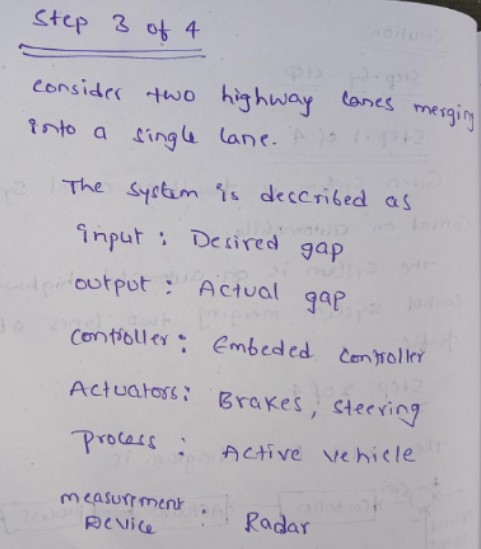 Step 3 of 4
consider two highway lanes merging
into a single lane.
The system is described as
input : Desired gap
output : Actual gap
controller : Embeded controller
Actuators : Brakes, steering
process : Active vehicle
measurement
Device : Radar